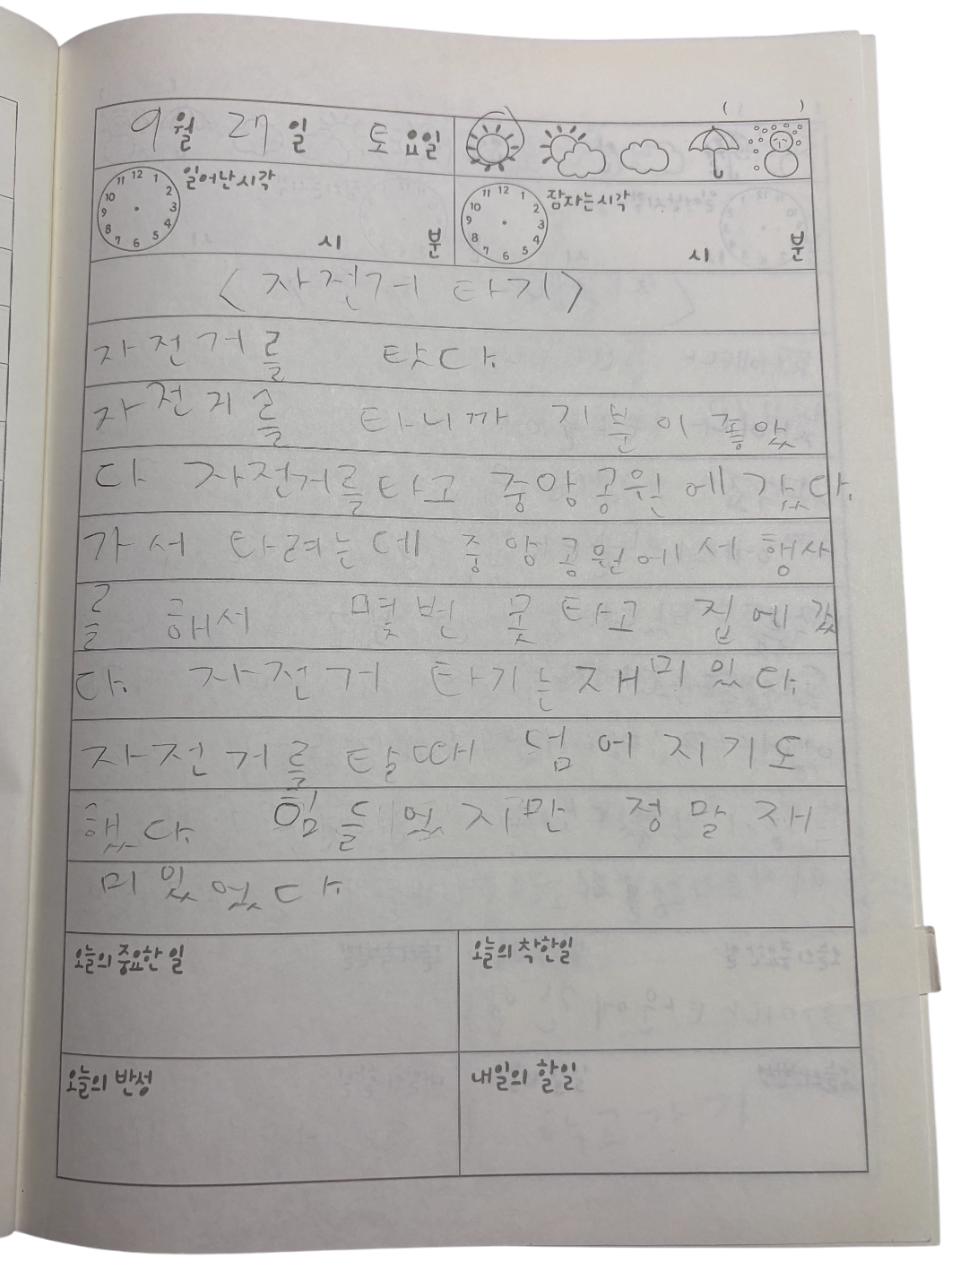 ( )
9월 27일 토요일
11 12 1 2 3 4 5 6 7 8 9 10 일어난시각 시 분
11 12 1 2 3 4 5 6 7 8 9 10 잠자는시각 시 분
〈자전거 타기〉
자전거를 탓다.
자전거를 타니까 기분이 좋았
다 자전거를타고 중앙공원에 갔다.
가서 타려는데 중앙공원에서 행사
를 해서 몇번 못타고 집에갔
다. 자전거 타기는재미있다.
자전거를 탈때 넘어지기도
했다. 힘들었지만 정말재
미있었다.
오늘의 중요한 일
오늘의 착한일
오늘의 반성
내일의 할일